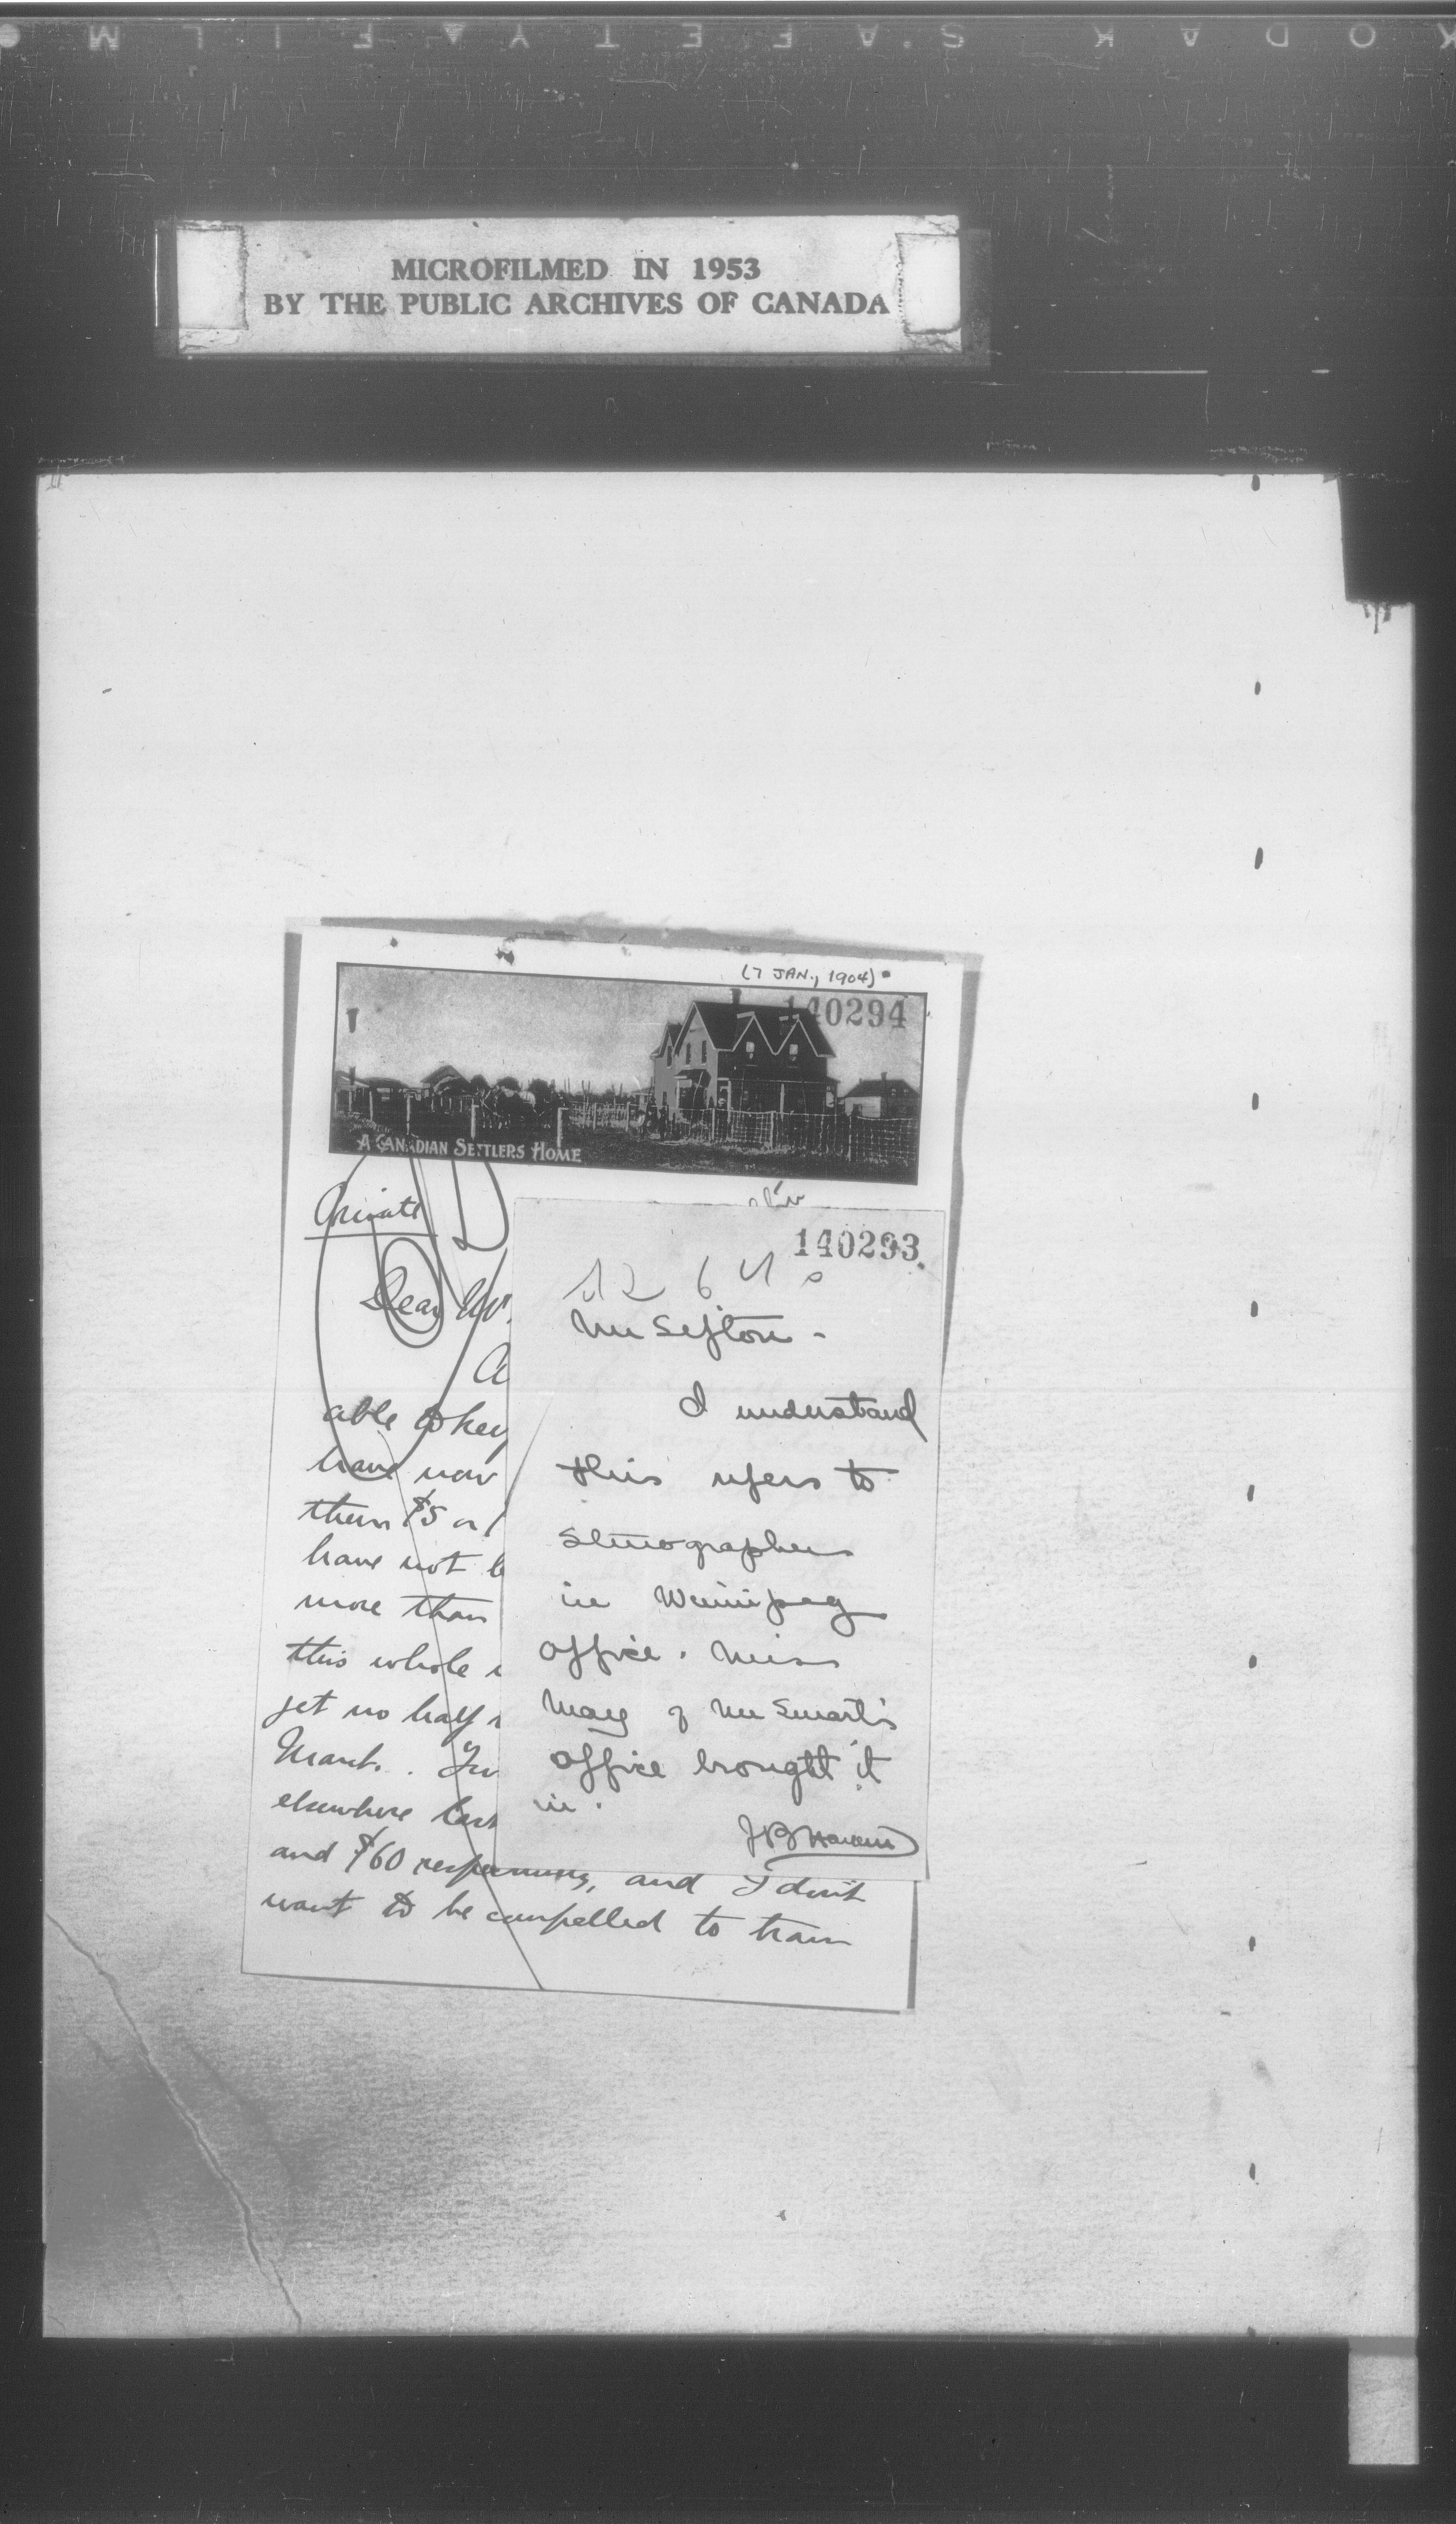 KODAK SAFETY FILM
MICROFILMED IN 1953
BY THE PUBLIC ARCHIVES OF CANADA
(7 JAN., 1904)
140294
A CANADIAN SETTLERS HOME
Private
Dear Mr.
able to
have now
them $5 or
have not
more than
this whole
get no half
March.
elsewhere last
and $60 and I don't
want to be compelled to train
140293
Mr Sifton -
I understand
this refers to
stenographer
in Winnipeg
office. Miss
May of Mr Smart's
office brought it
in.